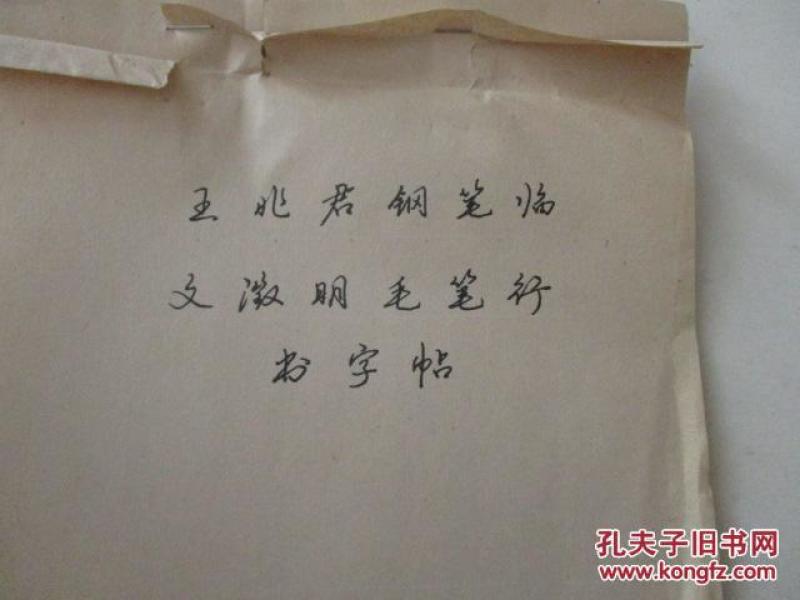 王兆君钢笔临
文徵明毛笔行
书字帖
孔夫子旧书网
www.kongfz.com